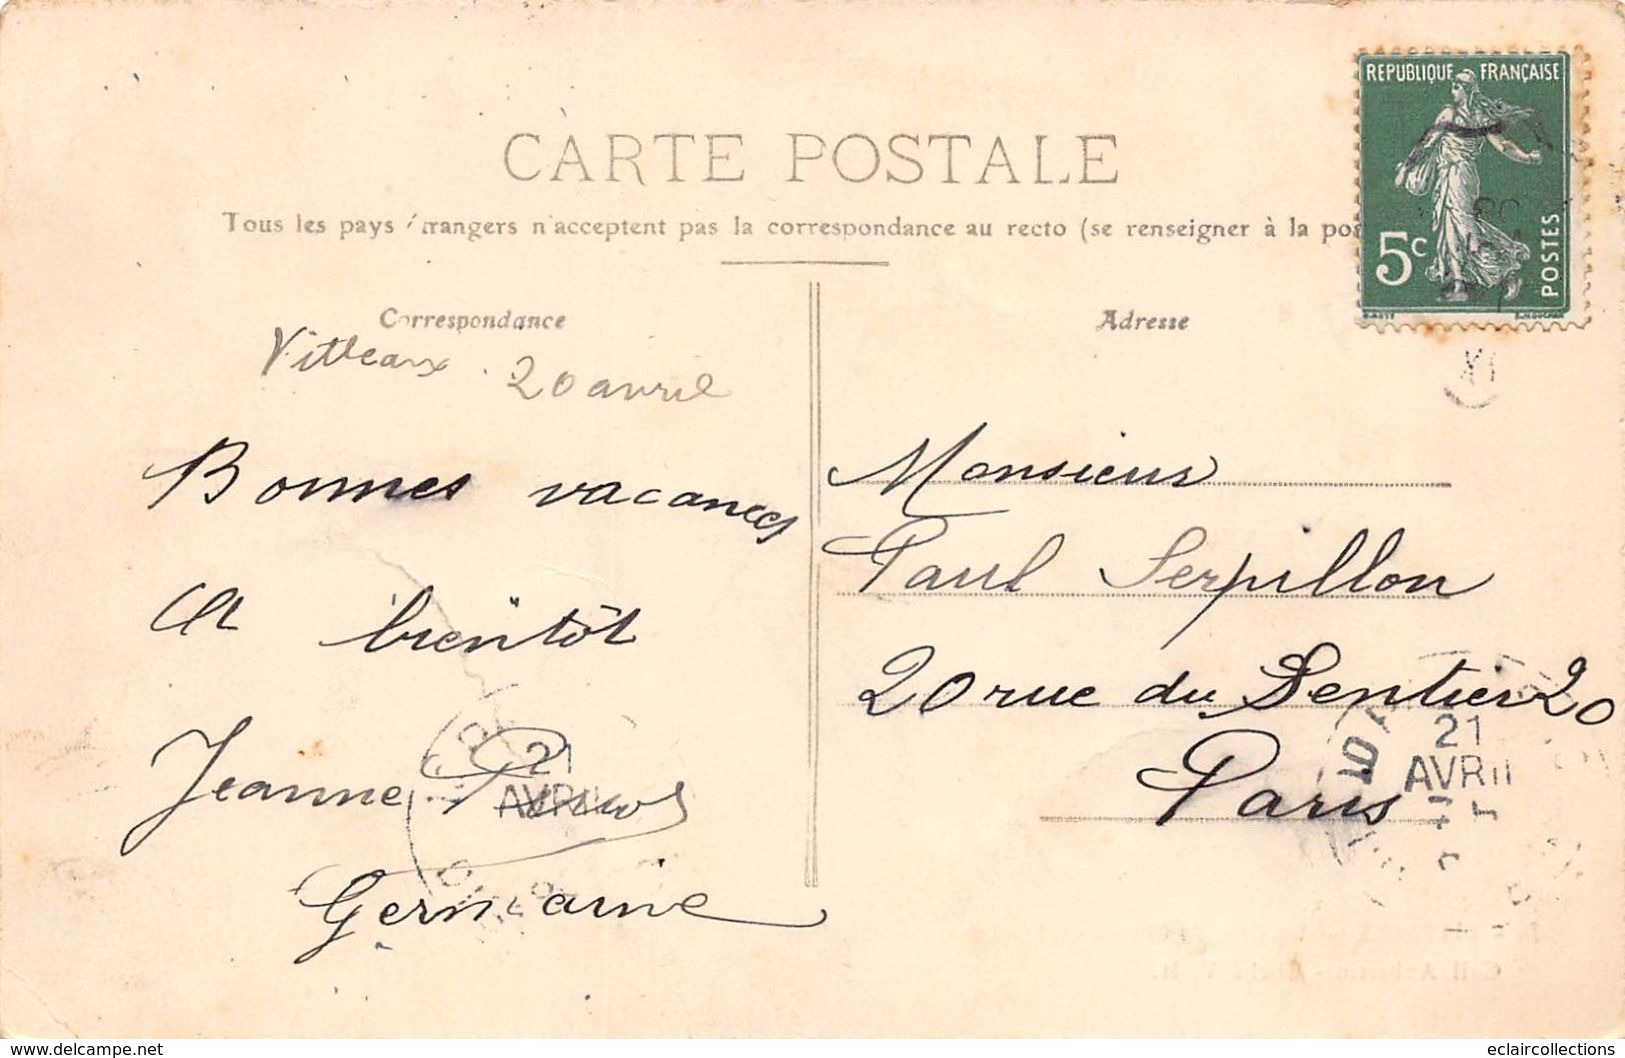 CARTE POSTALE
REPUBLIQUE FRANÇAISE
5c
POSTES
Tous les pays étrangers n'acceptent pas la correspondance au recto (se renseigner à la
Correspondance
Vitteaux 20 avril
Bonnes vacances
A bientôt
Jeanne
Germaine
Adresse
Monsieur
Paul Serpillon
20 rue du Sentier 20
Paris
21
AVRIL
21
AVRIL
www.delcampe.net
eclaircollections